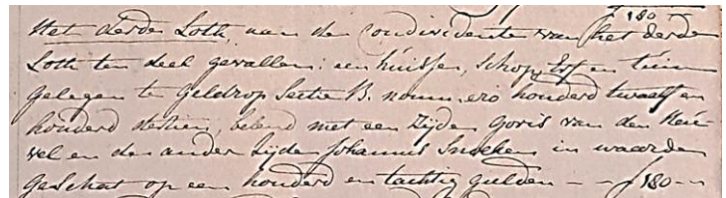 180
Het derde Loth aan de condividente van het derde
Loth ten deel gevallen: een huisje, Schop, Hof en tuin
gelegen te Geldrop Sectie B. nommero honderd twaalf en
honderd dertien, belend met een zijde Goris van den Heu-
vel en de ander zijde Johannis Snoeken in waarden
geschat op een honderd en tachtig gulden - - f 180 -